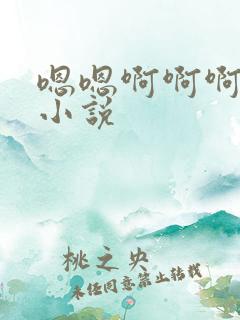 嗯嗯啊啊啊
小说
桃之央
未经同意禁止转载